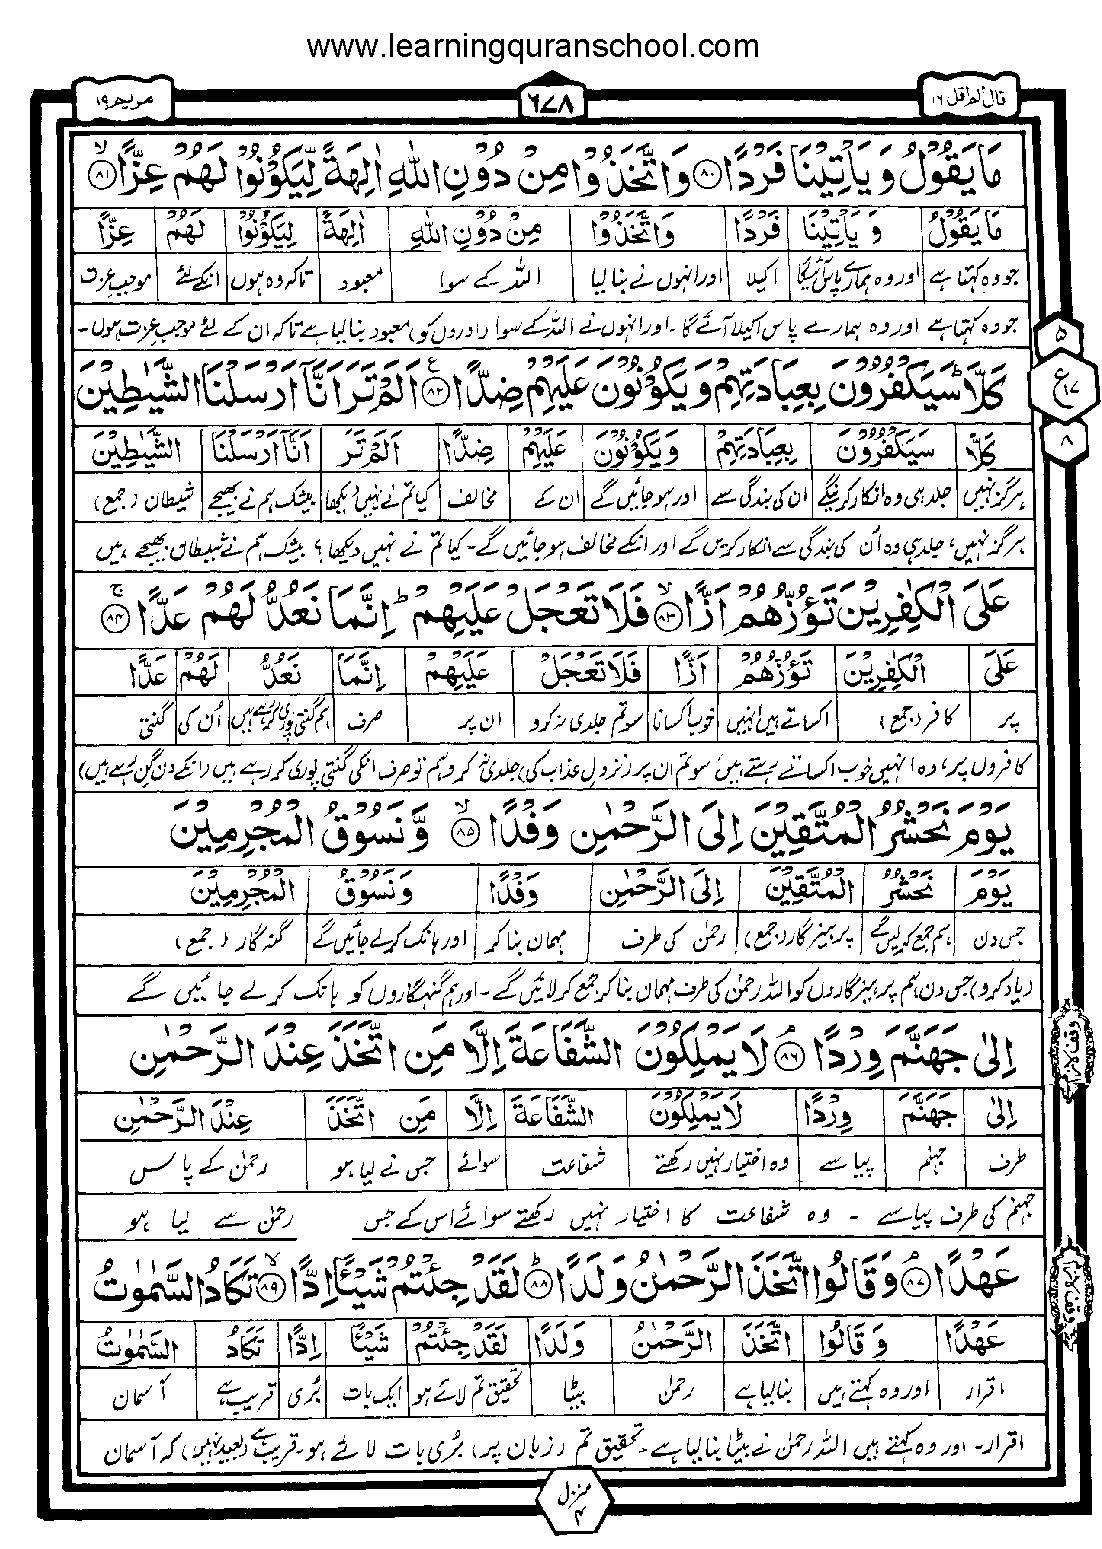 www.learningquranschool.com
قال الم اقل ١٦
٦٧٨
مريم ١٩
مَا يَقُوْلُ وَ يَاْتِيْنَا فَرْدًا ﴿٨٠﴾ وَاتَّخَذُوْا مِنْ دُوْنِ اللّٰهِ اٰلِهَةً لِّيَكُوْنُوْا لَهُمْ عِزًّا ﴿٨١﴾
مَا يَقُوْلُ وَ يَاْتِيْنَا فَرْدًا وَاتَّخَذُوْا مِنْ دُوْنِ اللّٰهِ اٰلِهَةً لِّيَكُوْنُوْا لَهُمْ عِزًّا
جو وہ کہتا ہے اور وہ ہمارے پاس آئیگا اکیلا اور انہوں نے بنا لیا اللہ کے سوا معبود تاکہ وہ ہوں انکے لئے موجب عزت
جو وہ کہتا ہے اور وہ ہمارے پاس اکیلا آئے گا۔ اور انہوں نے اللہ کے سوا (اوروں کو) معبود بنا لیا ہے تاکہ ان کے لئے موجب عزت ہوں۔
كَلَّا سَيَكْفُرُوْنَ بِعِبَادَتِهِمْ وَ يَكُوْنُوْنَ عَلَيْهِمْ ضِدًّا ﴿٨٢﴾ اَلَمْ تَرَ اَنَّا اَرْسَلْنَا الشَّيٰطِيْنَ
٥
ع ١٧
٨
كَلَّا سَيَكْفُرُوْنَ بِعِبَادَتِهِمْ وَ يَكُوْنُوْنَ عَلَيْهِمْ ضِدًّا اَلَمْ تَرَ اَنَّا اَرْسَلْنَا الشَّيٰطِيْنَ
ہرگز نہیں جلد ہی وہ انکار کرینگے ان کی بندگی سے اور ہو جائیں گے ان کے مخالف کیا تم نے نہیں دیکھا بیشک ہم نے بھیجے شیطان (جمع)
ہرگز نہیں، جلد ہی وہ اُن کی بندگی سے انکار کریں گے اور انکے مخالف ہو جائیں گے۔ کیا تم نے نہیں دیکھا؟ بیشک ہم نے شیطان بھیجے ہیں
عَلَى الْكٰفِرِيْنَ تَؤُزُّهُمْ اَزًّا ﴿٨٣﴾ فَلَا تَعْجَلْ عَلَيْهِمْ ؕ اِنَّمَا نَعُدُّ لَهُمْ عَدًّا ﴿٨٤﴾
عَلَى الْكٰفِرِيْنَ تَؤُزُّهُمْ اَزًّا فَلَا تَعْجَلْ عَلَيْهِمْ اِنَّمَا نَعُدُّ لَهُمْ عَدًّا
پر کافر (جمع) اکساتے ہیں انہیں خوب اکسانا سو تم جلدی نہ کرو ان پر صرف ہم گنتی پوری کر رہے ہیں اُن کی گنتی
کافروں پر، وہ انہیں خوب اکساتے رہتے ہیں، سو تم ان پر (نزول عذاب کی) جلدی نہ کرو ہم تو صرف انکی گنتی پوری کر رہے ہیں (انکے دن گن رہے ہیں)
يَوْمَ نَحْشُرُ الْمُتَّقِيْنَ اِلَى الرَّحْمٰنِ وَفْدًا ﴿٨٥﴾ وَّ نَسُوْقُ الْمُجْرِمِيْنَ
يَوْمَ نَحْشُرُ الْمُتَّقِيْنَ اِلَى الرَّحْمٰنِ وَفْدًا وَ نَسُوْقُ الْمُجْرِمِيْنَ
جس دن ہم جمع کر لیں گے پرہیزگار (جمع) رحمٰن کی طرف مہمان بنا کر اور ہانک کر لے جائیں گے گنہ گار (جمع)
(یاد کرو) جس دن ہم پرہیزگاروں کو اللہ رحمٰن کی طرف مہمان بنا کر جمع کر لائیں گے۔ اور ہم گنہگاروں کو ہانک کر لے جائیں گے
اِلٰى جَهَنَّمَ وِرْدًا ﴿٨٦﴾ لَا يَمْلِكُوْنَ الشَّفَاعَةَ اِلَّا مَنِ اتَّخَذَ عِنْدَ الرَّحْمٰنِ
اِلٰى جَهَنَّمَ وِرْدًا لَا يَمْلِكُوْنَ الشَّفَاعَةَ اِلَّا مَنِ اتَّخَذَ عِنْدَ الرَّحْمٰنِ
طرف جہنم پیاسے وہ اختیار نہیں رکھتے شفاعت سوائے جس نے لیا ہو رحمٰن کے پاس
جہنم کی طرف پیاسے ۔ وہ شفاعت کا اختیار نہیں رکھتے سوائے اس کے جس رحمٰن سے لیا ہو
عَهْدًا ﴿٨٧﴾ وَ قَالُوا اتَّخَذَ الرَّحْمٰنُ وَلَدًا ﴿٨٨﴾ لَقَدْ جِئْتُمْ شَيْـًٔا اِدًّا ﴿٨٩﴾ تَكَادُ السَّمٰوٰتُ
عَهْدًا وَ قَالُوا اتَّخَذَ الرَّحْمٰنُ وَلَدًا لَقَدْ جِئْتُمْ شَيْـًٔا اِدًّا تَكَادُ السَّمٰوٰتُ
اقرار اور وہ کہتے ہیں بنا لیا ہے رحمٰن بیٹا تحقیق تم لائے ہو ایک بات بُری قریب ہے آسمان
اقرار۔ اور وہ کہتے ہیں اللہ رحمٰن نے بیٹا بنا لیا ہے۔ تحقیق تم (زبان پر) بُری بات لائے ہو۔ قریب ہے (بعید نہیں) کہ آسمان
منزل
٤